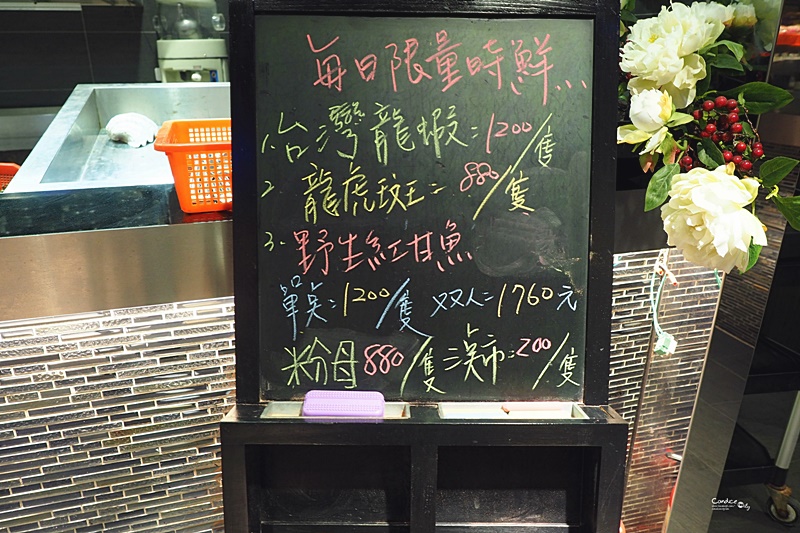 每日限量時鮮...
1.台灣龍蝦=1200/隻
2.龍虎斑=880/隻
3.野生紅甘魚
單点:1200/隻 双人=1760元
粉母880/隻 漠市=200/隻
Candice